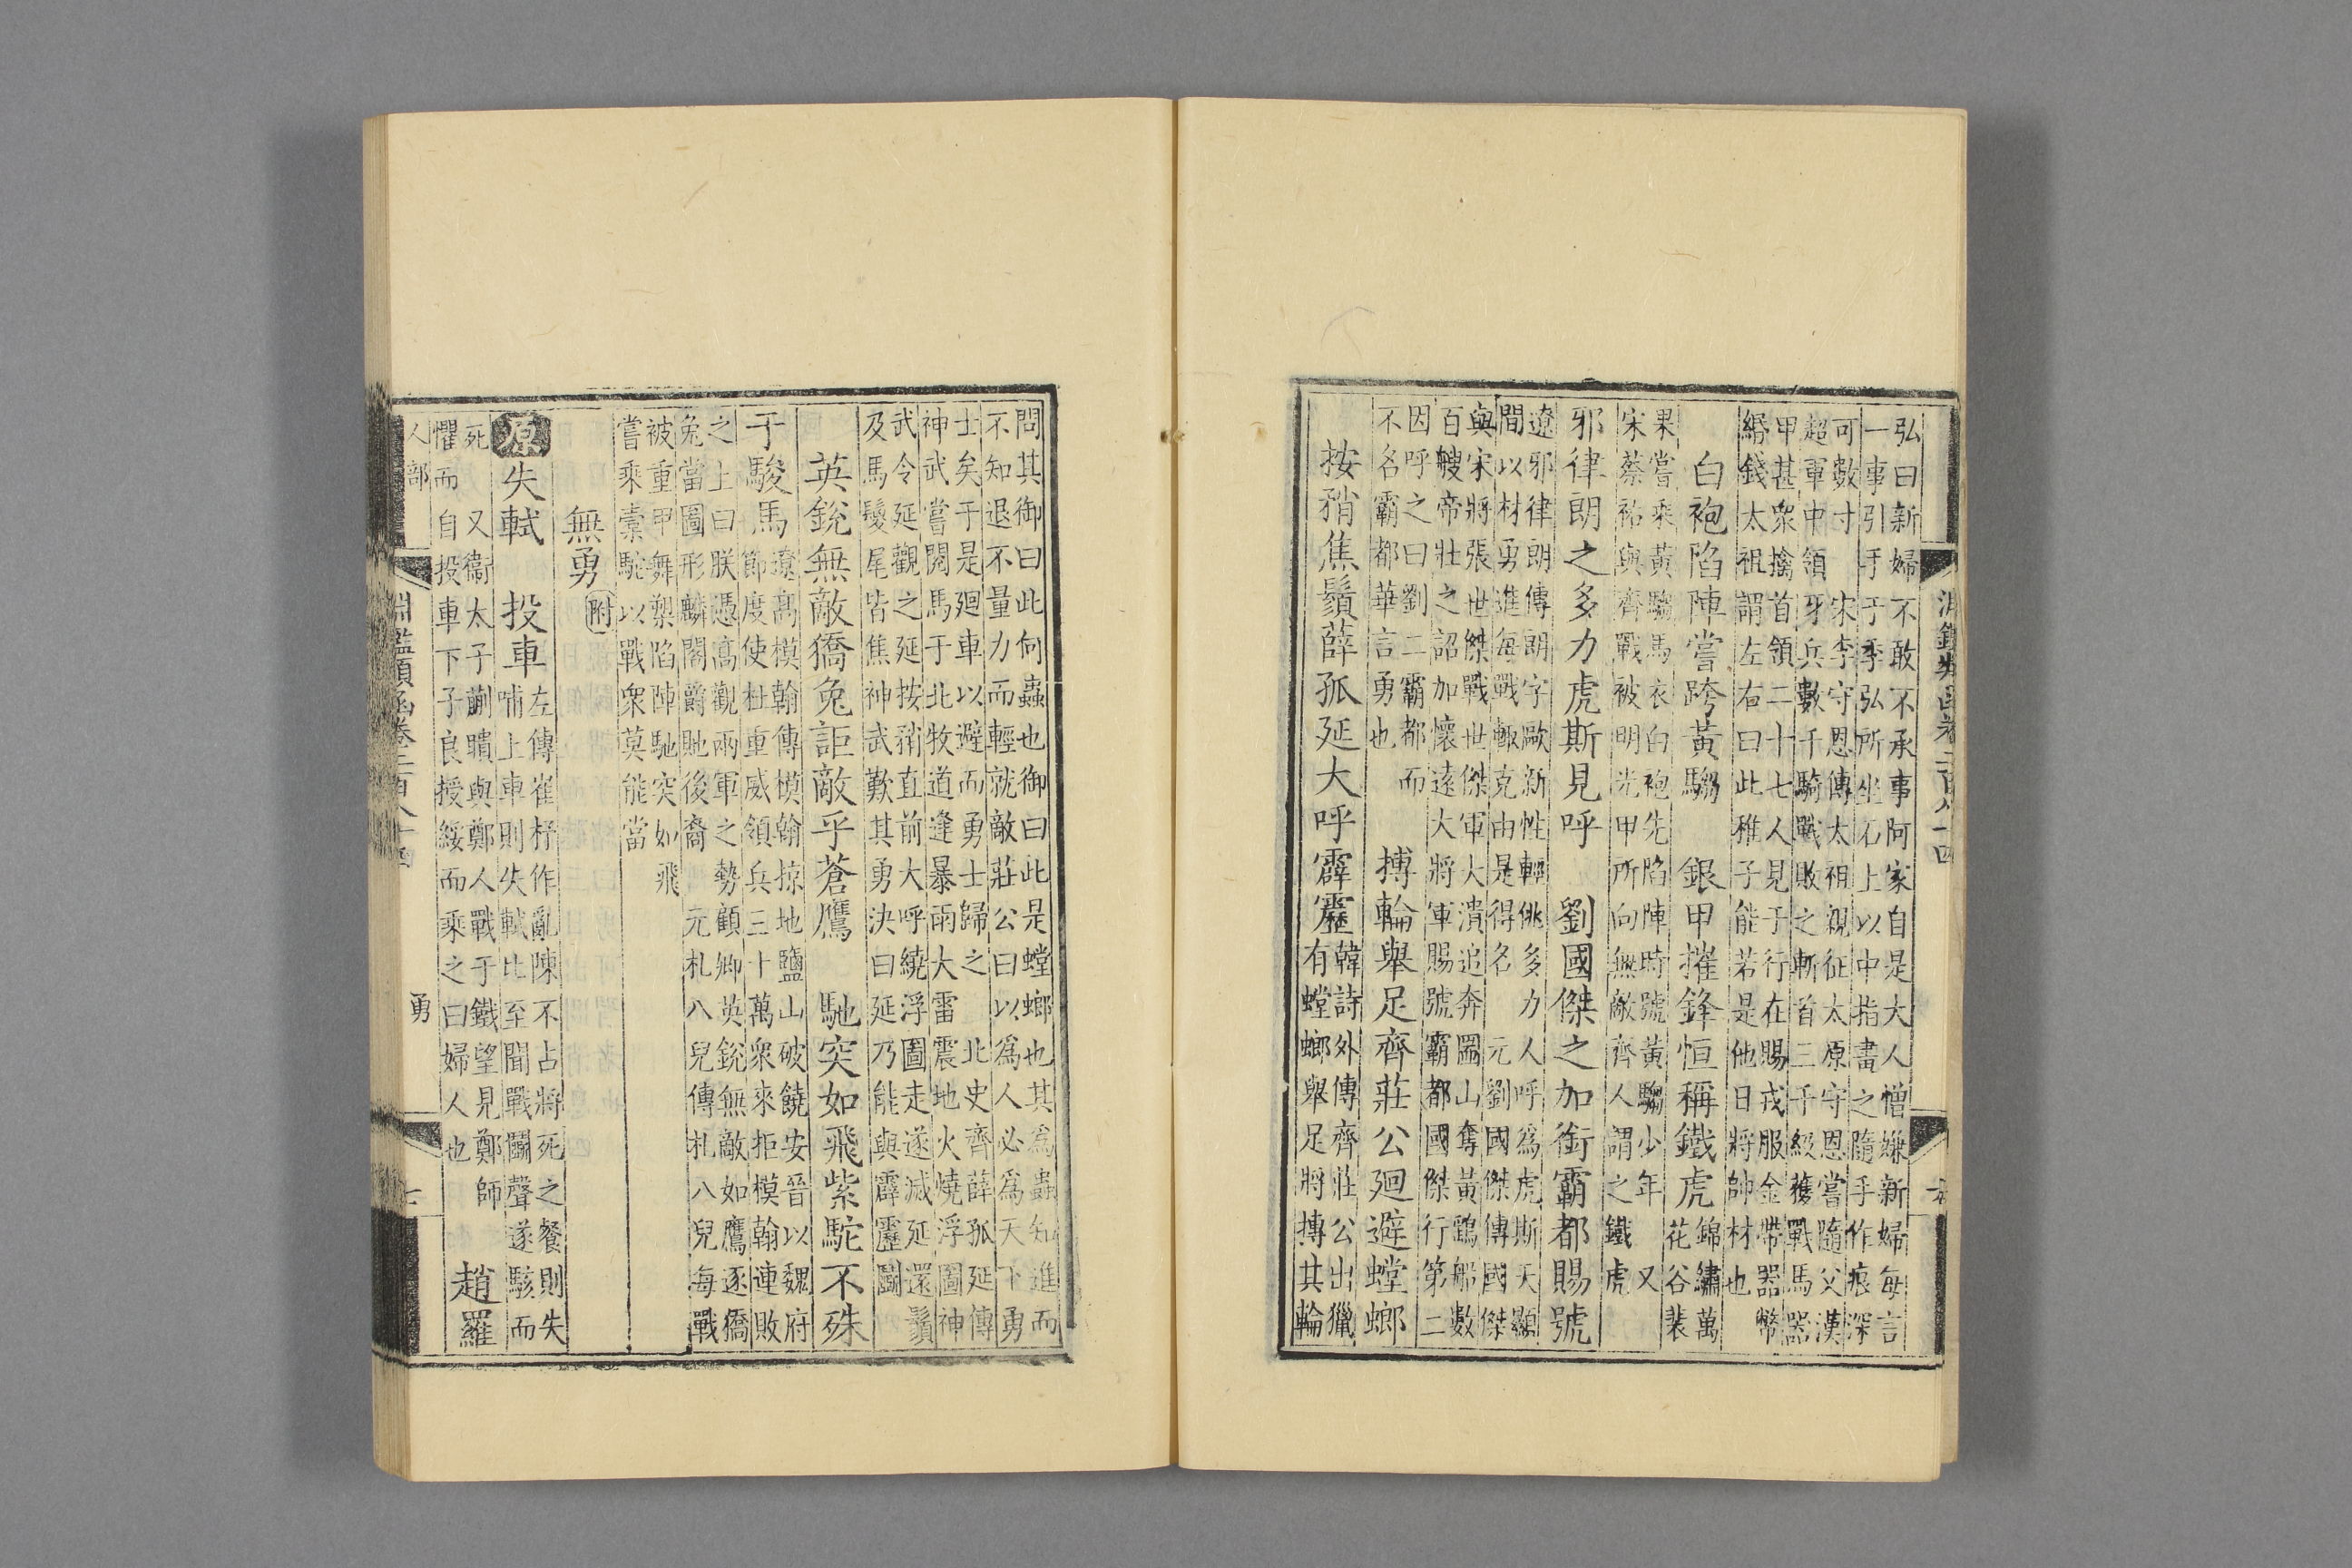 弘曰新婦不敢不承事阿家自是大人憎嫌新婦每言
一事引手于季弘所坐石上以中指畫之隨手作痕深
可數寸　宋李守恩傳太祖親征太原守恩嘗隨父漢
超軍中領牙兵數千騎戰敗之斬首三千級獲戰馬器
甲甚衆擒首領二十七人見于行在賜戎服金帶器幣
緡錢太祖謂左右曰此稚子能若是他日將帥材也
白袍陷陣嘗跨黃驄　銀甲摧鋒恒稱鐵虎
錦繡萬
花谷裴
果嘗乘黃驄馬衣白袍先陷陣時號黃驄少年　又
宋蔡祐與齊戰被明光甲所向無敵齊人謂之鐵虎
邪律朗之多力虎斯見呼　劉國傑之加銜霸都賜號
遼邪律朗傳朗字歐新性輕佻多力人呼爲虎斯天顯
間以材勇進每戰輙克由是得名　元劉國傑傳國傑
與宋將張世傑戰世傑軍大潰追奔圖山奪黃鵠船數
百艘帝壯之詔加懷遠大將軍賜號霸都國傑行第二
因呼之曰劉二霸都而
不名霸都華言勇也
搏輪舉足齊莊公廻避螳螂
按矟焦鬚薛孤延大呼霹靂
韓詩外傳齊莊公出獵
有螳螂舉足將搏其輪
淵鑑類函卷二百八十四
問其御曰此何蟲也御曰此是螳螂也其爲蟲知進而
不知退不量力而輕就敵莊公曰以爲人必爲天下勇
士矣于是廻車以避而勇士歸之　北史齊薛孤延傳
神武嘗閱馬于北牧道逢暴雨大雷震地火燒浮圖神
武令延觀之延按矟直前大呼繞浮圖走遂滅延還鬚
及馬鬉尾皆焦神武歎其勇決曰延乃能與霹靂鬬
英銳無敵獢兔詎敵乎蒼鷹　馳突如飛紫駝不殊
于駿馬
遼高模翰傳模翰掠地鹽山破饒安晉以魏府
節度使杜重威領兵三十萬衆來拒模翰連敗
之上曰朕憑高觀兩軍之勢顧卿英銳無敵如鷹逐獢
兔當圖形麟閣爵貤後裔　元札八兒傳札八兒每戰
被重甲舞槊陷陣馳突如飛
嘗乘槖駝以戰衆莫能當
無勇附
原失軾　投車
左傳崔杼作亂陳不占將死之餐則失
哺上車則失軾比至聞戰鬬聲遂駭而
死　又衞太子蒯聵與鄭人戰于鐵望見鄭師
懼而自投車下子良授綏而乘之曰婦人也
趙羅
人部
淵鑑類函卷二百八十四
勇
七